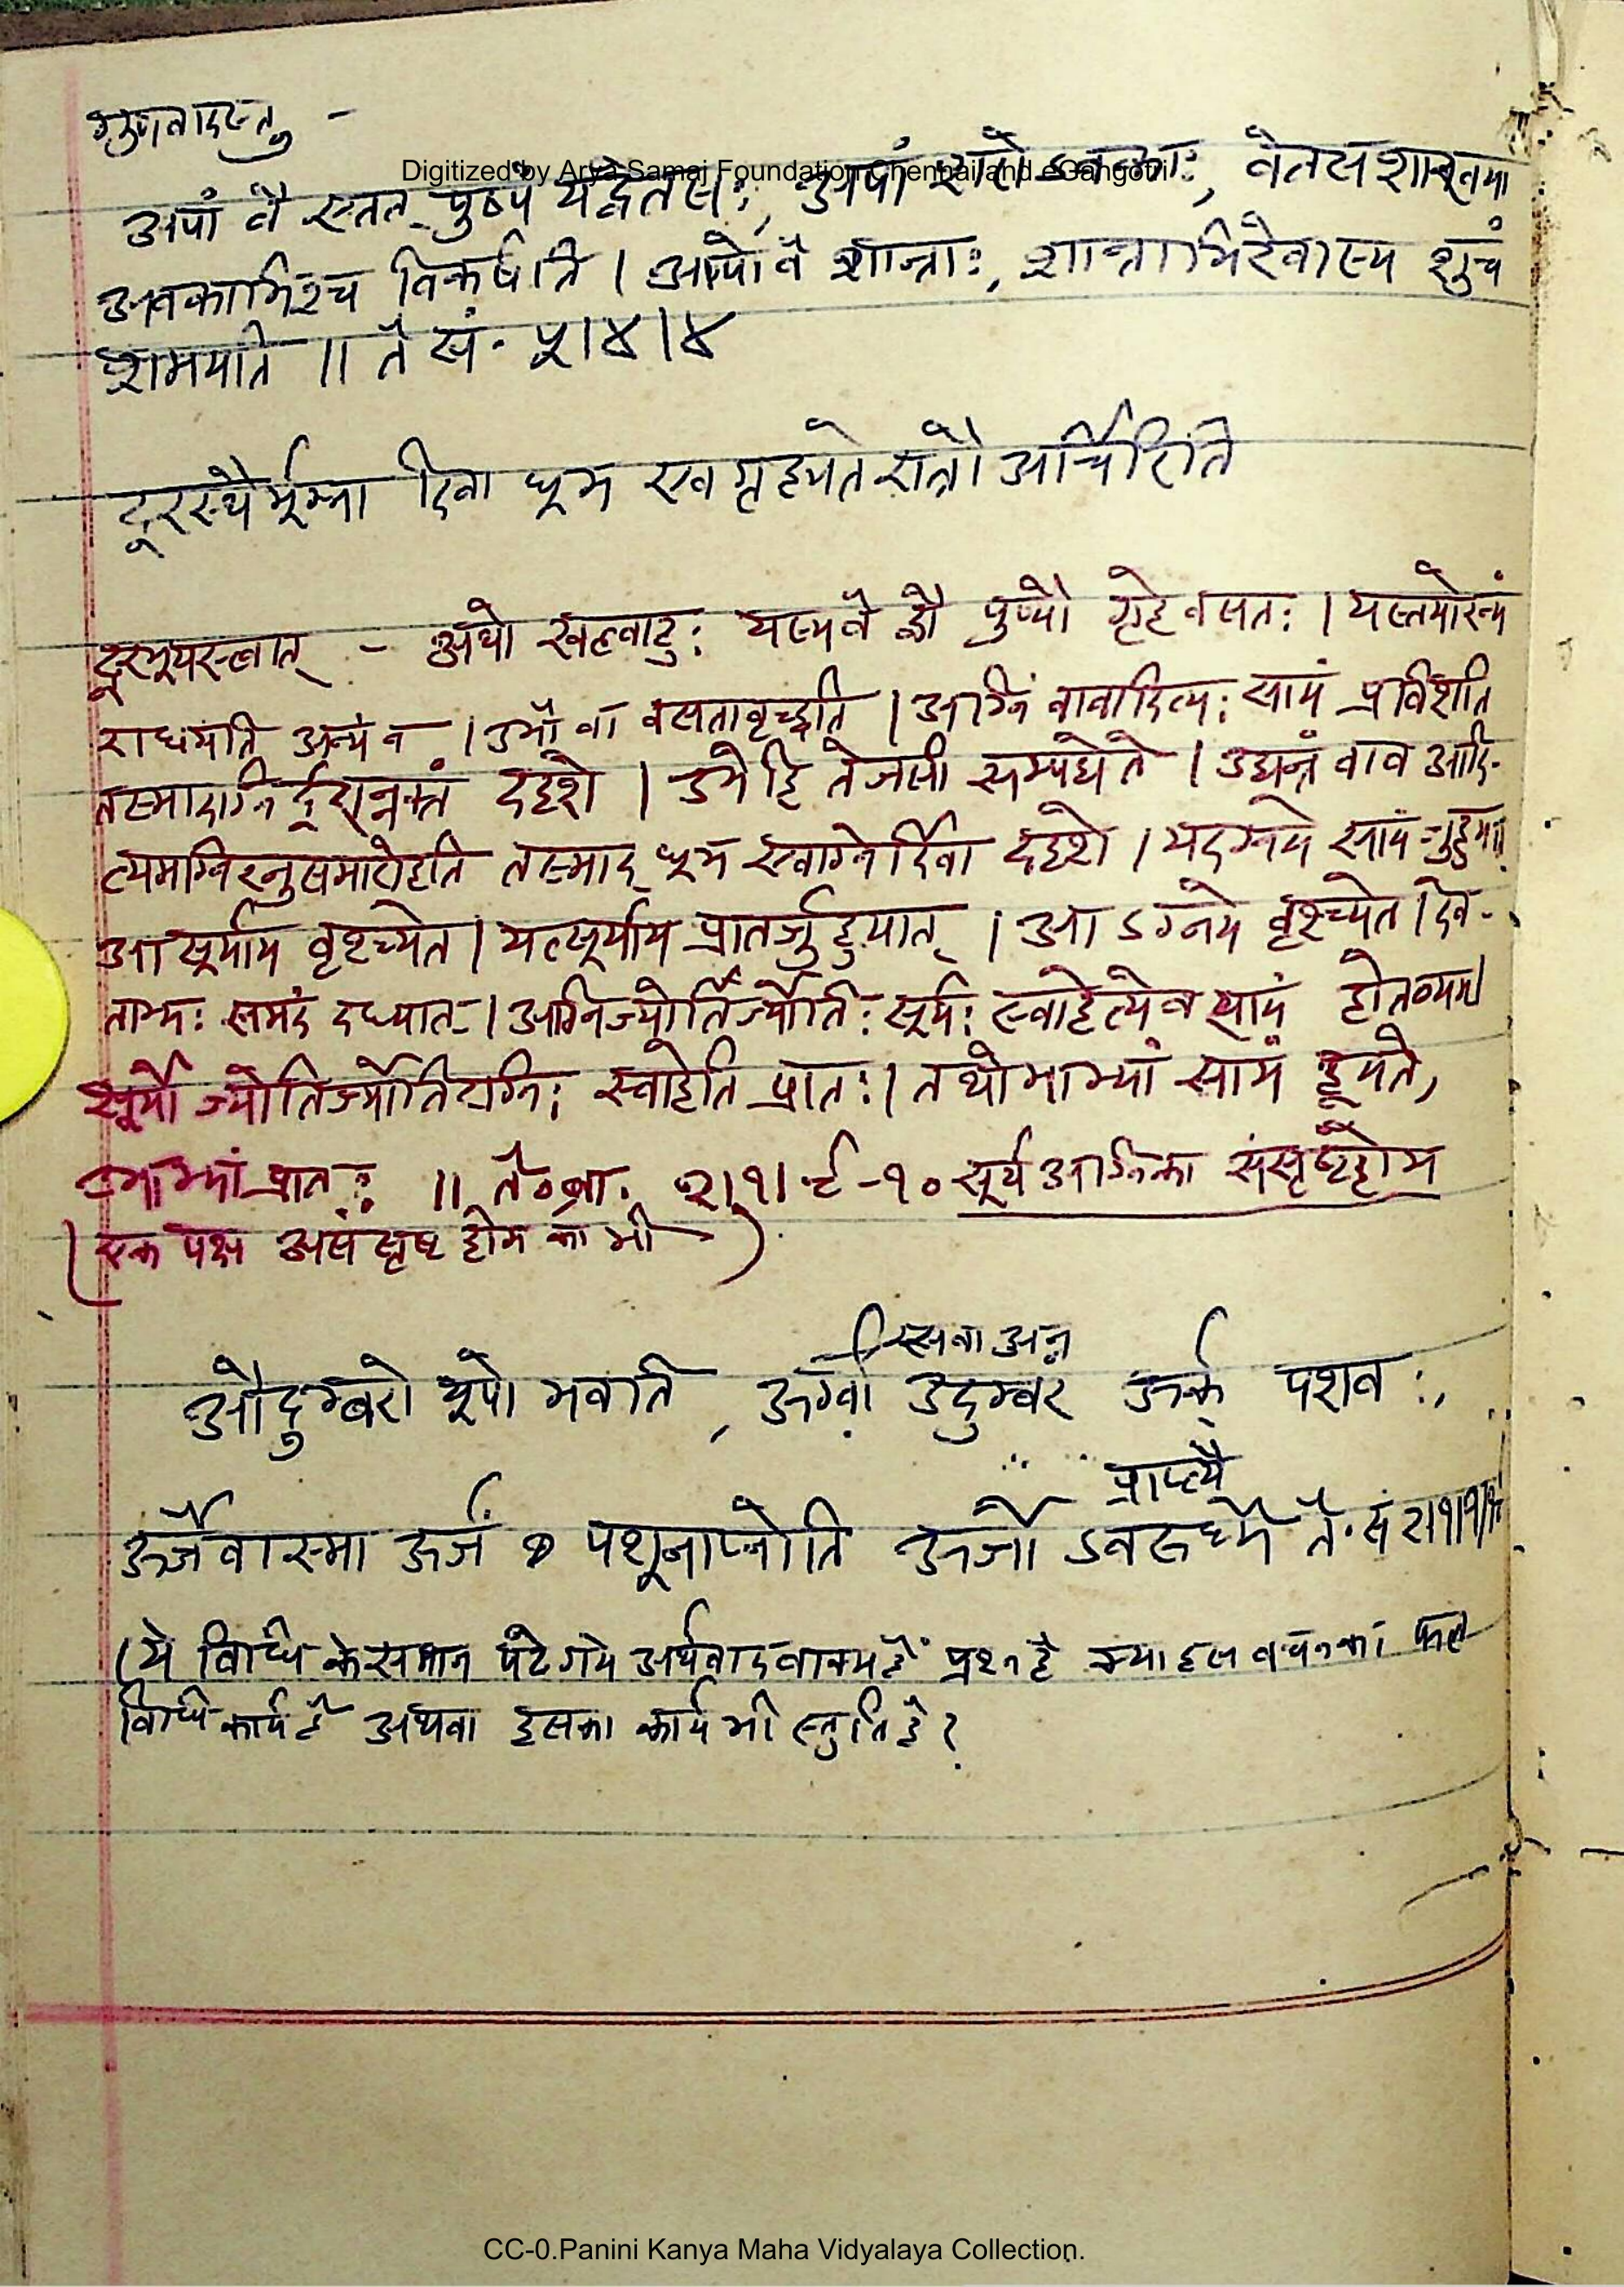 गुणवादस्तु -
Digitized by Arya Samaj Foundation Chennai and eGangotri
अपां वै एतत् पुष्पं यद्वेतसः, अपां शरो ऽवकाः, वेतसशाखया
अवकाभिश्च विकर्षति । आपो वै शान्ताः, शान्ताभिरेवास्य शुचं
शमयति ॥ तै सं. ५।४।४
दूरस्थैर्भूम्ना दिवा धूम एव गृह्यते रात्रौ अर्चिरिति
दूरभूयस्त्वात् - अथो खल्वाहुः यस्य वै द्वौ पुण्यौ गृहे वसतः । यस्तयोरन्यं
राधयति अन्यं न । उभौ वा वसतावृच्छति । अग्निं वावादित्यः सायं प्रविशति
तस्मादग्निर्दूरान्नक्तं ददृशे । उभे हि तेजसी सम्पद्येते । उद्यन्तं वाव आदि-
त्यमग्निरनुसमारोहति तस्माद् धूम एवाग्नेर्दिवा ददृशे । यदग्नये सायं जुहुयात्
आ सूर्याय वृश्च्येत । यत्सूर्याय प्रातर्जुहुयात् । आ ऽग्नये वृश्च्येत । देव-
ताभ्यः समदं दध्यात् । अग्निर्ज्योतिर्ज्योतिः सूर्यः स्वाहेत्येव सायं होतव्यम्
सूर्यो ज्योतिर्ज्योतिरग्निः स्वाहेति प्रातः । तथोभाभ्यां सायं हूयते,
उभाभ्यां प्रातः ॥ तै०ब्रा. २।१।२-१० सूर्य अग्नि का संसृष्टहोम
(एक पक्ष असंसृष्ट होम का भी)
रसवा अन्न
औदुम्बरो यूपो भवति, ऊर्ग्वा उदुम्बर ऊर्क् पशवः,
प्राप्त्यै
ऊर्जैवास्मा ऊर्जं पशूनाप्नोति ऊर्जो ऽवरुध्यै तै. सं २।१।१।६
(ये विधि के समान पढे गये अर्थवाद वाक्य हैं प्रश्न है क्या इस वचन का फल
विधि कार्य है अथवा इसका कार्य भी स्तुति है?
CC-0.Panini Kanya Maha Vidyalaya Collection.